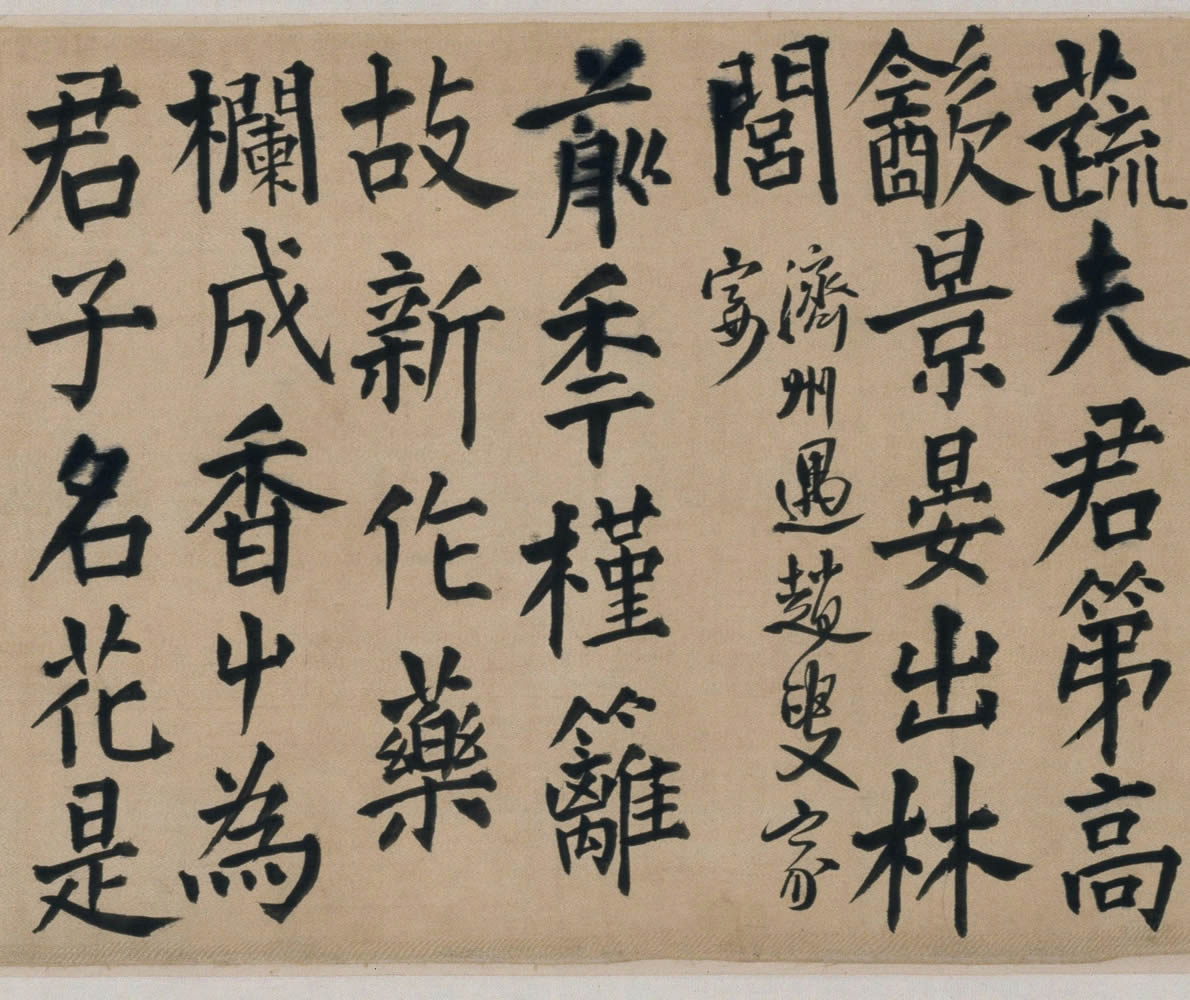 蔬夫君第高
㱃景晏出林
閭
濟州過趙叟家
宴
前秊槿籬
故新作藥
欄成香屮為
君子名花是